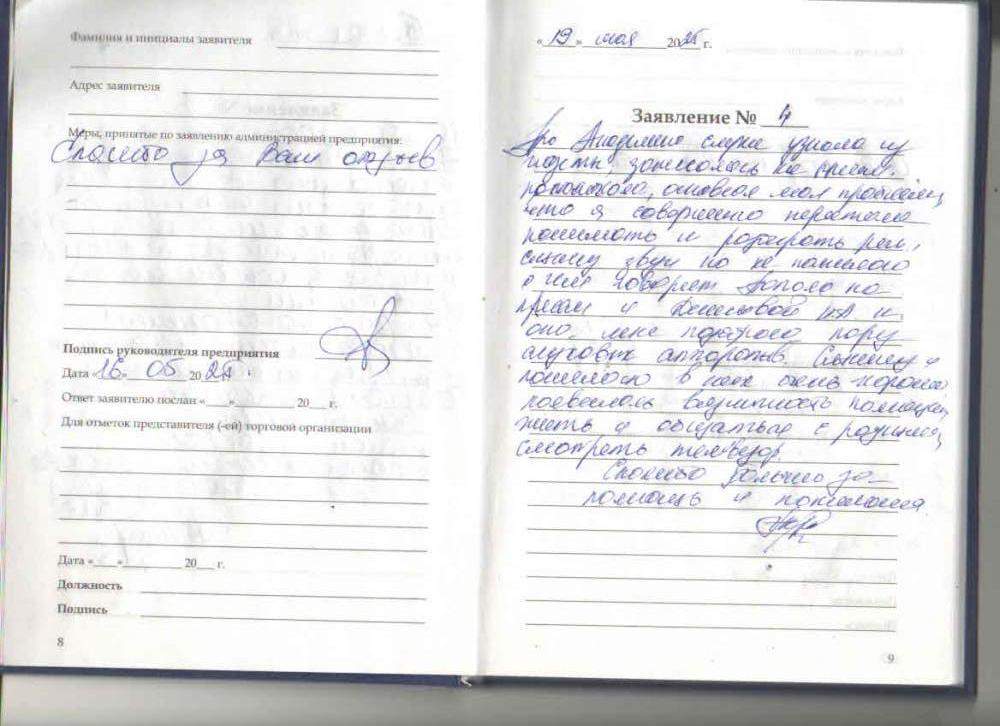 Фамилия и инициалы заявителя
Адрес заявителя
Меры, принятые по заявлению администрацией предприятия:
Спасибо за Ваш отзыв
Подпись руководителя предприятия
Дата «16» 05 20 25 г.
Ответ заявителю послан «___» ________ 20___ г.
Для отметок представителя (-ей) торговой организации
Дата «___» ________ 20___ г.
Должность
Подпись
8
«19» мая 2025 г.
Заявление № 4
Про Академию слуха узнала из
газеты, записалась на
основная моя проблема,
что я совершенно перестала
понимать и разбирать речь,
слышу звук но не понимаю
о чем говорят. Попала на
прием к
она мне подобрала пару
слуховых аппаратов. Слышу и
понимаю в них очень хорошо
появилась возможность
жить и общаться с родными,
смотреть телевизор
Спасибо большое за
помощь и понимание.
9